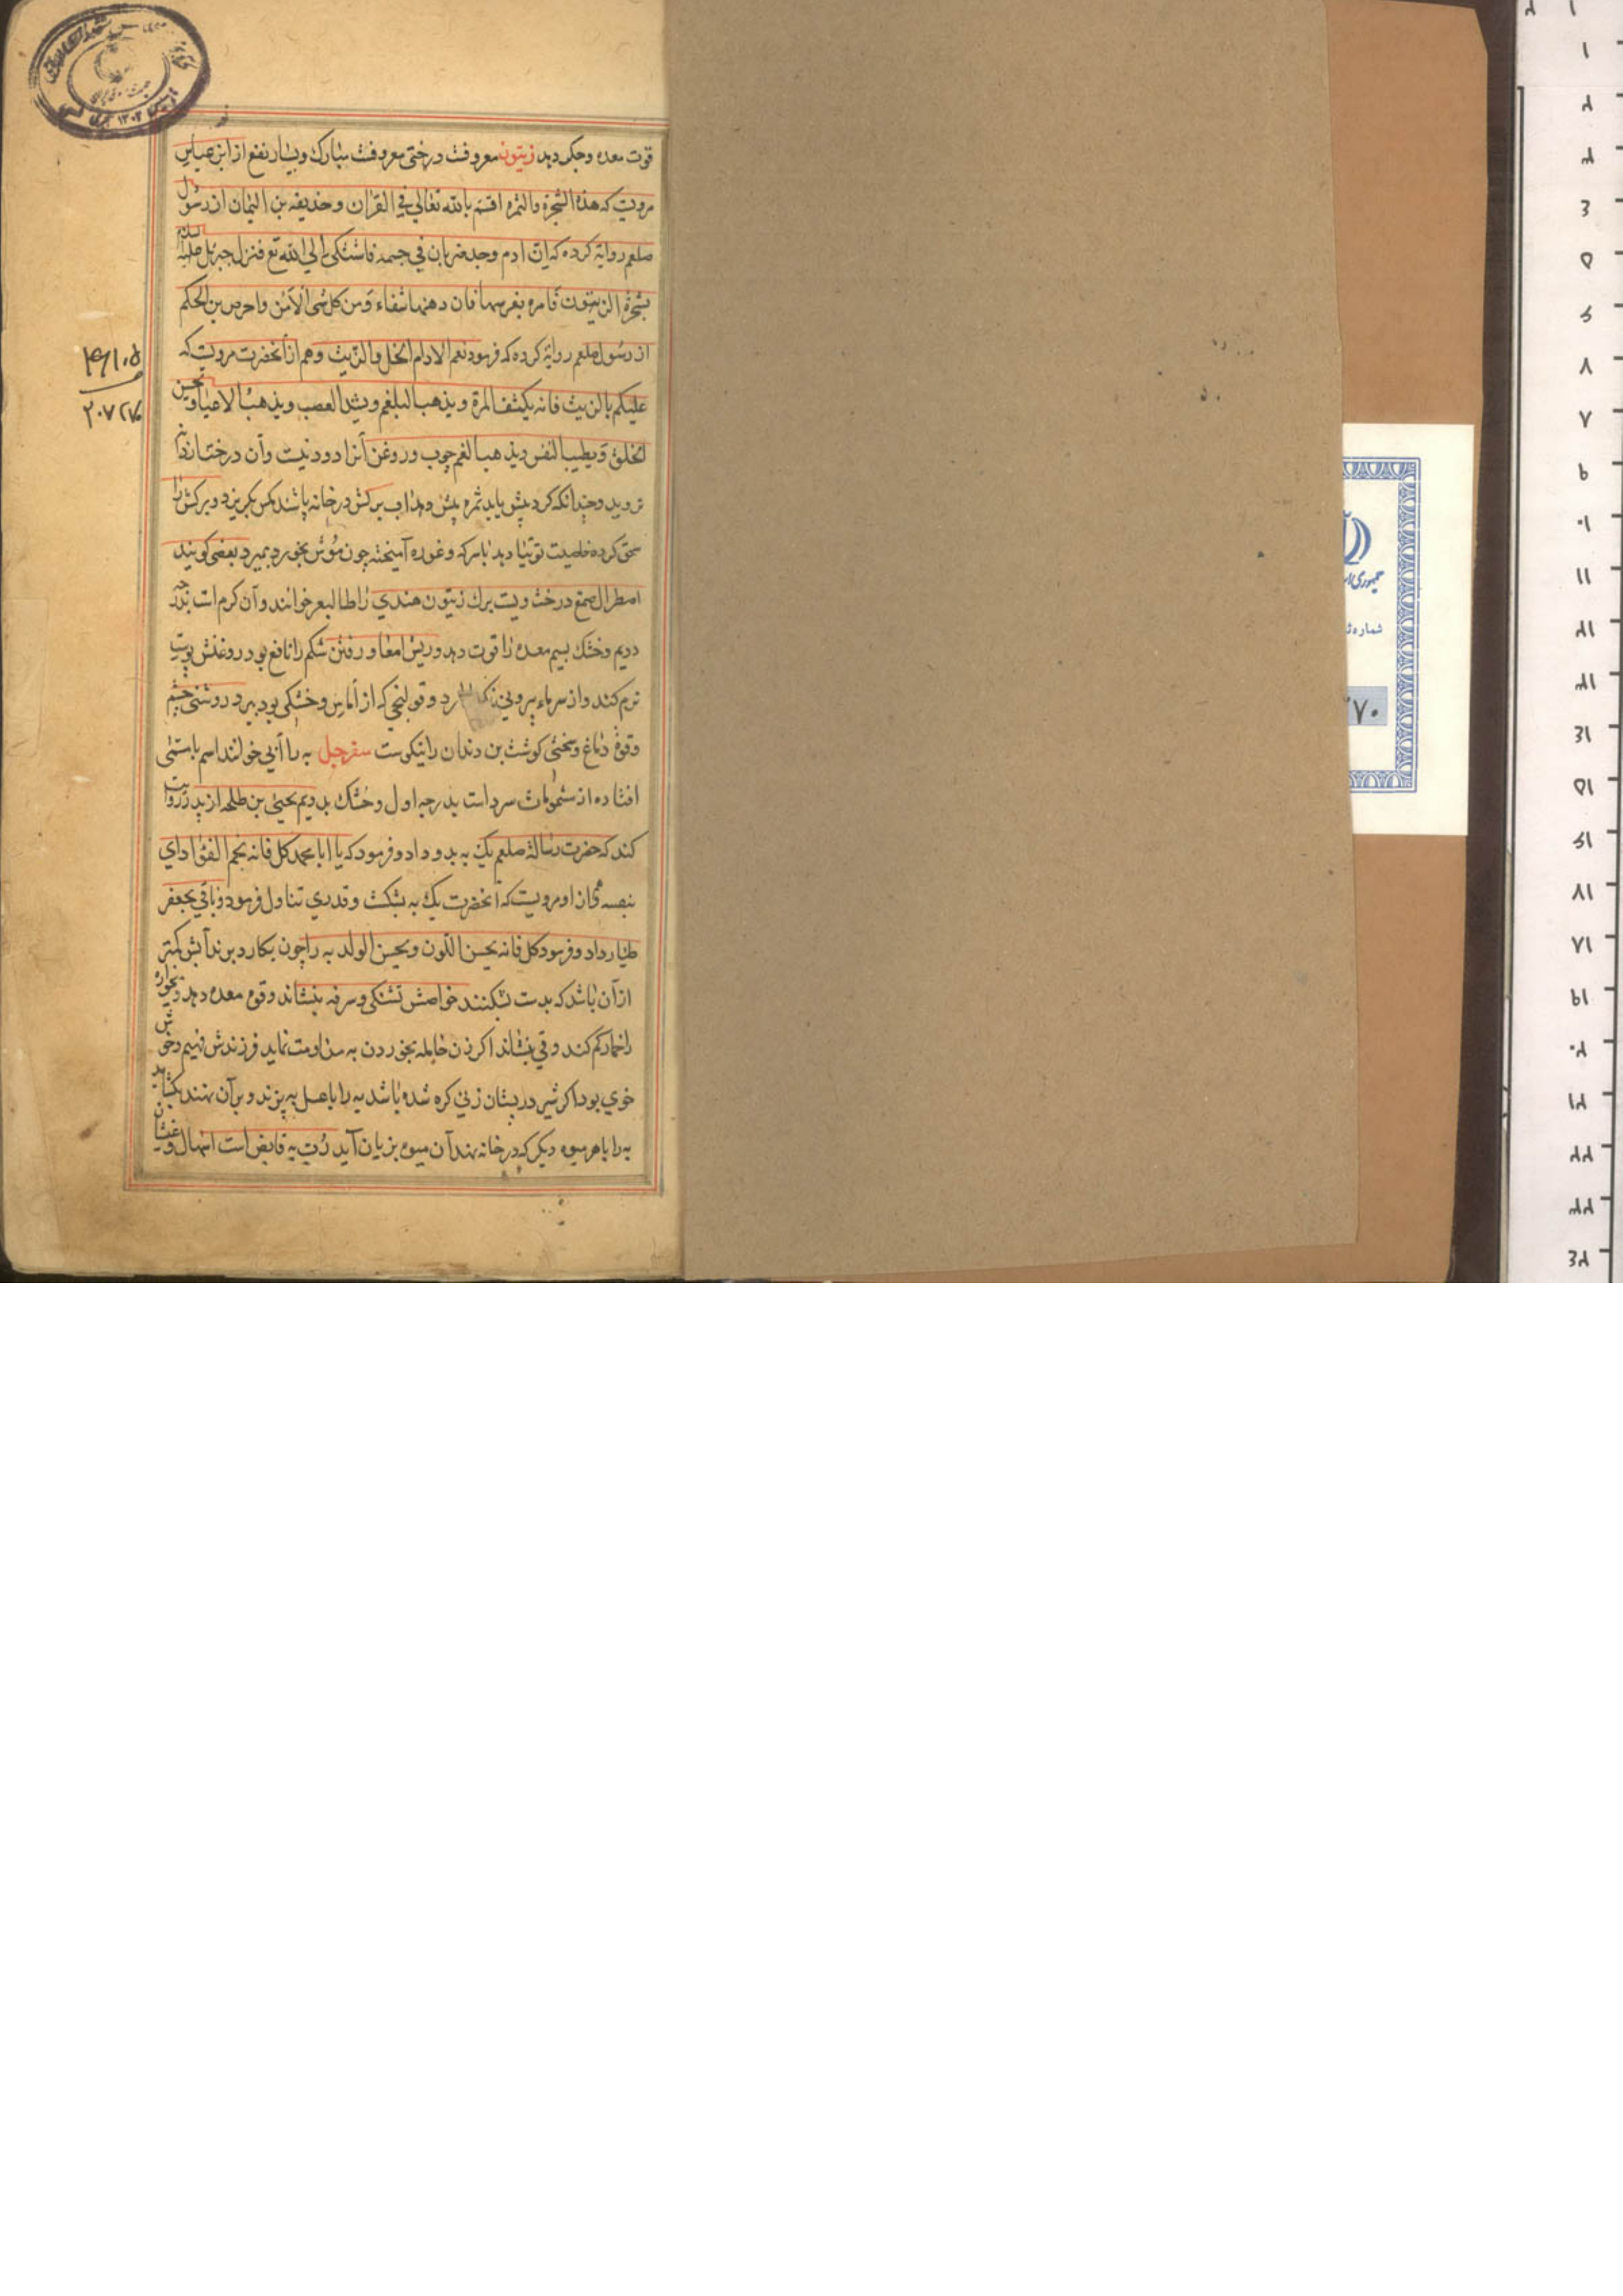 قوت معده وجکر دهد زیتون معروفت درختی معروفت مبارک وبسیار نفع از ابن عباس
مرویت که هذه الشجرة والثمره اقسم بالله تعالی في القرآن وحذیفه بن الیمان از رسول
صلعم روایة کرده که ان ادم وجد ضربان في جسمه فاشتکی الی الله تع فنزل جبرئل علیه السلم
بشجرة الزیتون فامره بغرسها فان دهنها شفاء ومن کل شی الا من بن الحکم
از رسول صلعم روایة کرده که فرمود نعم الادام الخل والزیت وهم از آنحضرت مرویت که
علیکم بالزیت فانه یکشف المرة ویذهب البلغم ویشد العصب ویذهب الاعیا ویحسن
الخلق ویطیب النفس ویذهب الغم چوب وروغن آنرا دود نیست وآن درخت
نروید وچندانکه کرد بیش یابد ثمره بیش دهد اب برکش در خانه پاشند مکس بکریزد وبرکش را
سحق کرده خاصیت توتیا دهد باسرکه وغوره آمیخته چون موش بخورد بمیرد بعضی کویند
صمغ درخت ویست برک زیتون هندی را خوانند وآن کرم است بدرجه
دویم وخشک بسیم معده را قوت دهد وریش امعا ورفتن شکم را نافع بود روغنش پوست
نرم کند واز سرماء بیرونی وقولنجی که از آماس وخشکی بود ببرد روشنی چشم
وقوة دماغ وسختی کوشت بن دندان را نیکوست سفرجل به را آبی خوانند اسم بامسمی
افتاده از سرد است بدرجه اول وخشک بدویم یحیی بن طلحه از پدر روایت
کند که حضرت رسالة صلعم یک به بدو داد وفرمود که یا ابا محمد کل فانه یجم الفؤاد ای
او مرویست که آنحضرت یک به بشکست وقدری تناول فرمود وباقی بجعفر
طیار داد وفرمود کل فانه یحسن اللون ویحسن الولد به را چون بکارد برند آبش کمتر
از آن باشد که بدست بشکنند خواصش تشنکی وسرفه بنشاند وقوة معده دهد
را خمار کم کند وقی بنشاند اکر زن حامله بخوردن به مداومت نماید فرزندش فهیم وخوش
خوی بود اکر شیر در پستان زنی کره شده باشد به را باعسل به پزند وبر آن نهند بکشاید
به را باهر میوه دیکر که در خانه نهند آن میوه بزیان آید رب به قابض است اسهال وغثیان
۲۰۷۲۷
شماره
۷۰